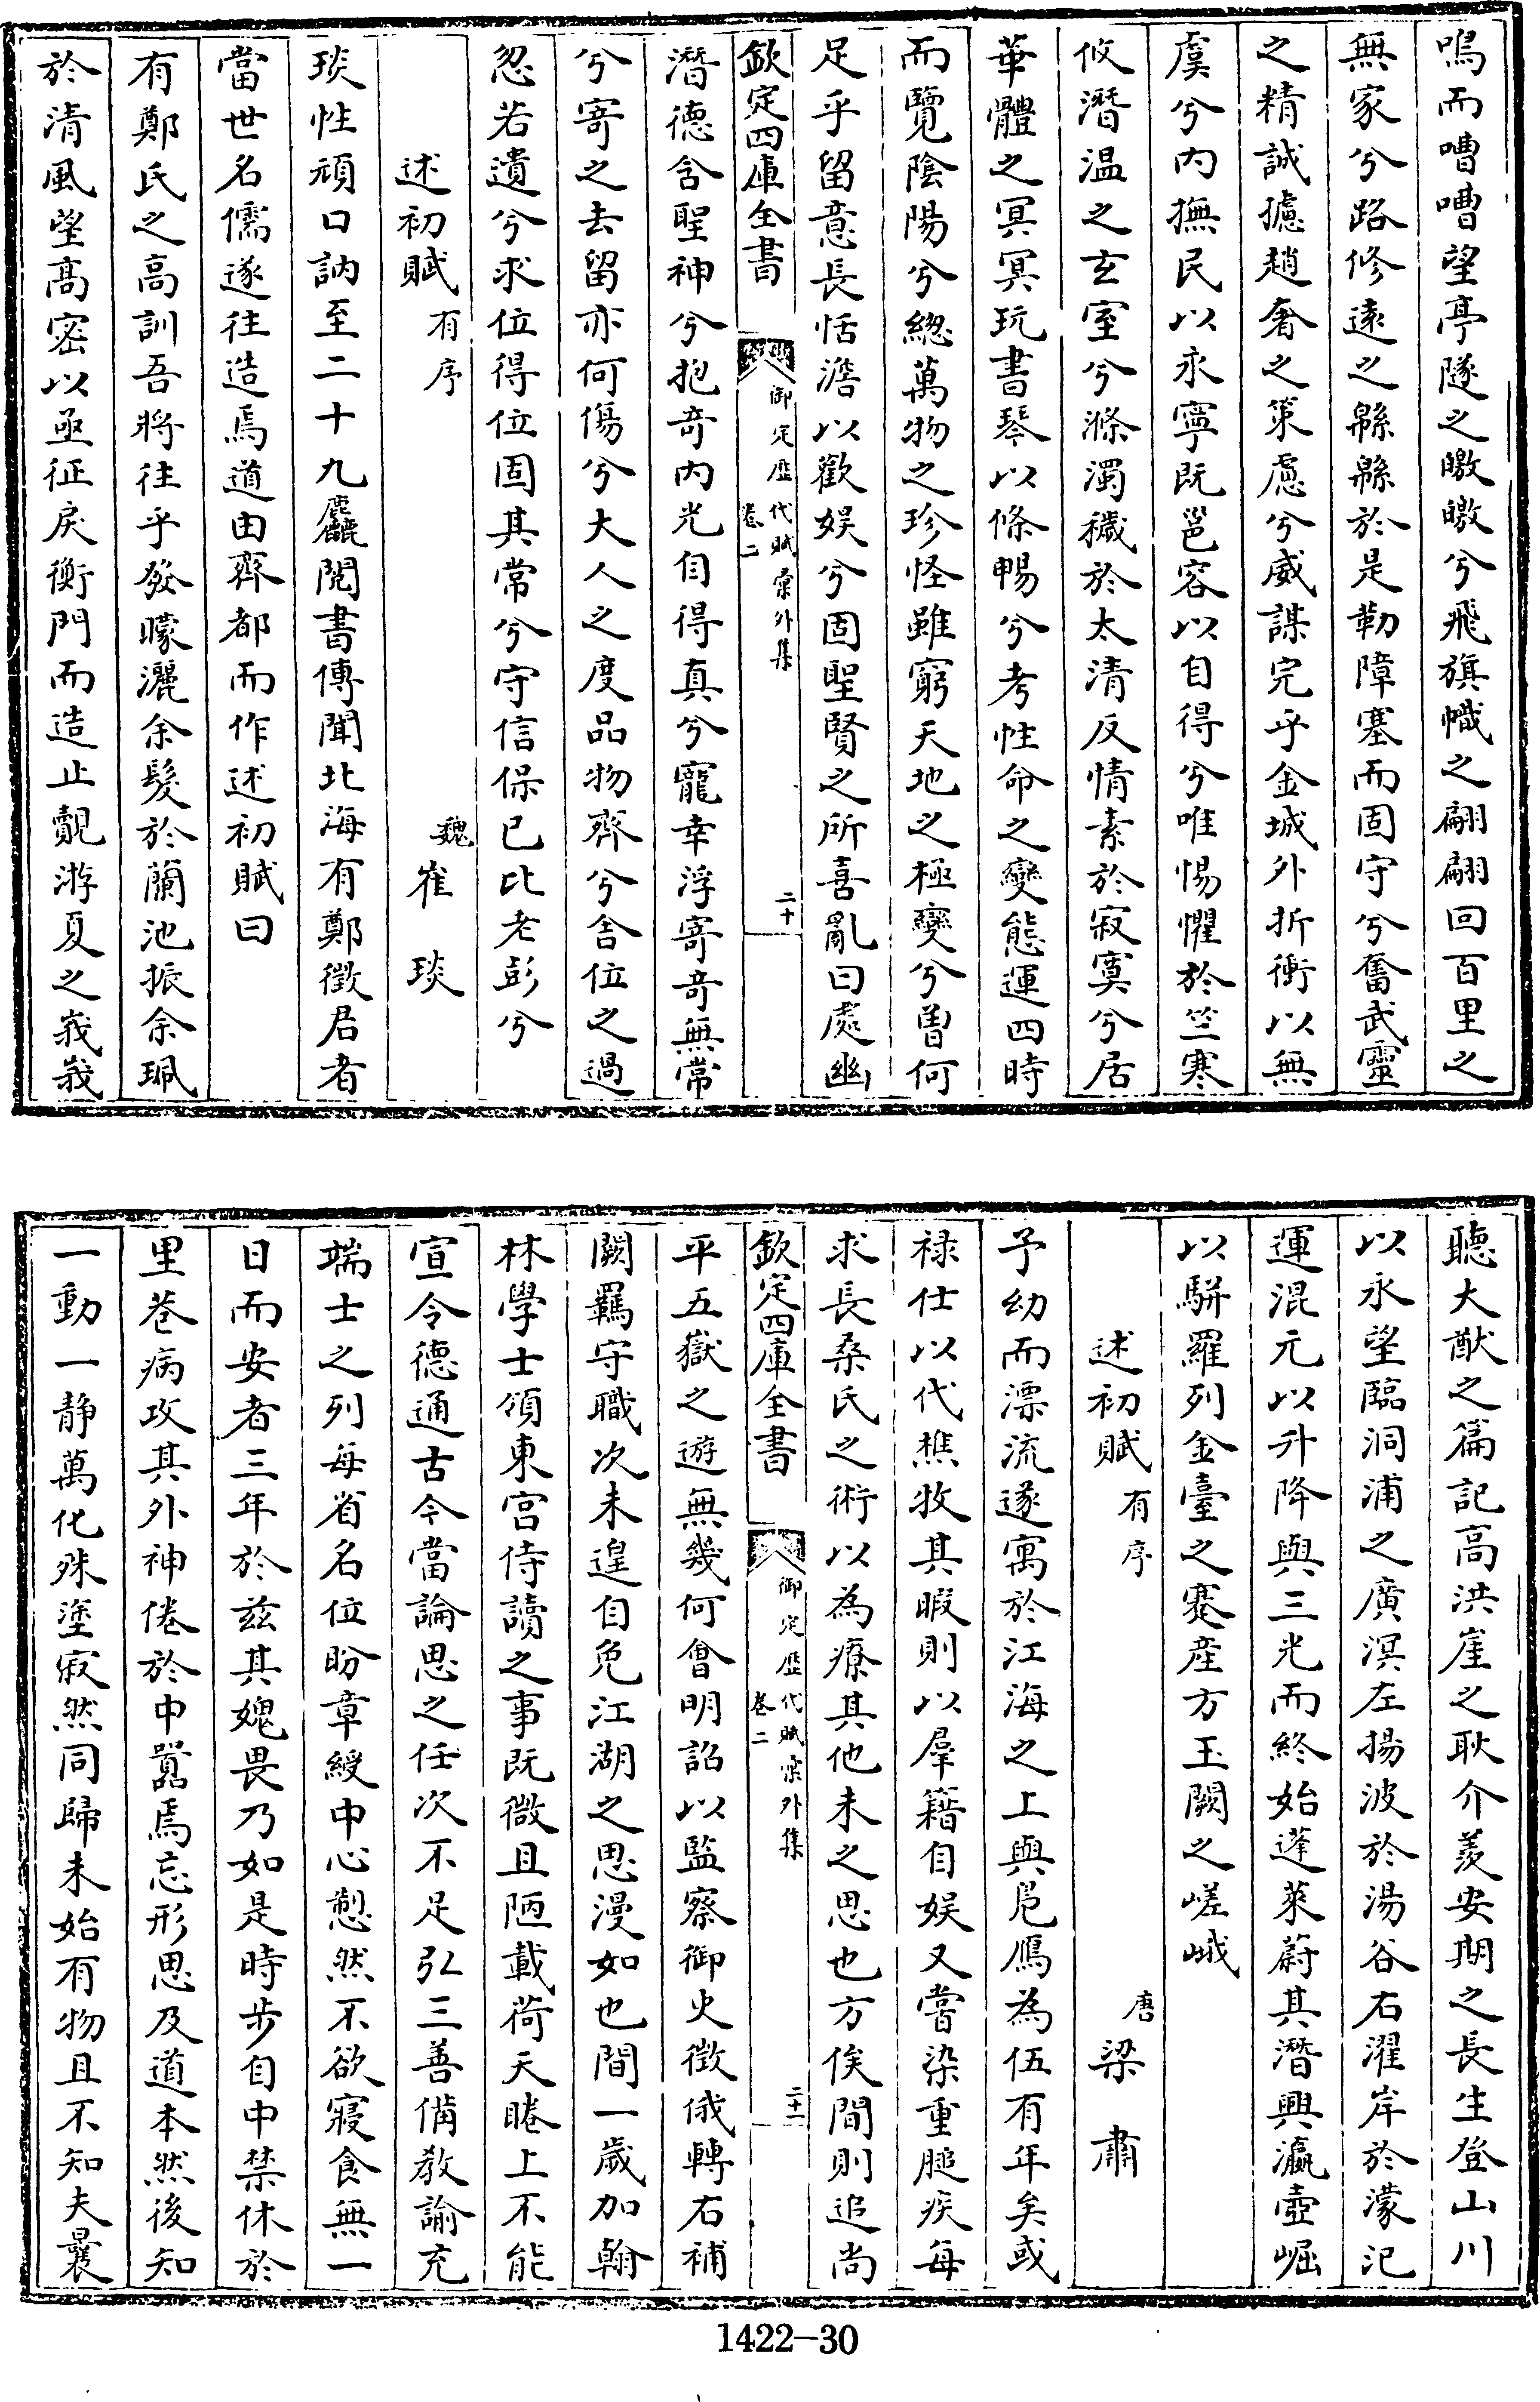 鳴而嘈嘈望亭隧之皦皦兮飛旗幟之翩翩回百里之
無家兮路修遠之緜緜於是勒障塞而固守兮奮武靈
之精誠攄趙奢之策慮兮威謀完乎金城外折衝以無
虞兮内撫民以永寧既邕容以自得兮唯惕懼於竺寒
攸潛温之玄室兮滌濁穢於太清反情素於寂寞兮居
華體之冥冥玩書琴以條暢兮考性命之變態運四時
而覽陰陽兮總萬物之珍怪雖窮天地之極變兮曽何
足乎留意長恬澹以歡娱兮固聖賢之所喜亂曰處幽
欽定四庫全書
御定歴代賦彙外集
卷二
二十
潛德含聖神兮抱竒内光自得真兮寵幸浮寄竒無常
兮寄之去留亦何傷兮大人之度品物齊兮舍位之過
忽若遺兮求位得位固其常兮守信保已比老彭兮
述初賦有序
魏崔琰
琰性頑口訥至二十九麤閲書傳聞北海有鄭徵君者
當世名儒遂往造焉道由齊都而作述初賦曰
有鄭氏之高訓吾將往乎發矇灑余髮於蘭池振余珮
於清風望髙密以亟征戾衡門而造止覿游夏之峩峩
聽大猷之篇記高洪崖之耿介羨安期之長生登山川
以永望臨洞浦之廣溟左揚波於湯谷右濯岸於濛汜
運混元以升降與三光而終始蓬萊蔚其潛興瀛壺崛
以駢羅列金臺之蹇産方玉闕之嵯峨
述初賦有序
唐梁肅
予幼而漂流遂寓於江海之上與鳬鴈為伍有年矣或
禄仕以代樵牧其暇則以羣籍自娱又嘗染重膇疾每
求長桑氏之術以為療其他未之思也方俟間則追尚
欽定四庫全書
御定歴代賦彙外集
卷二
二十一
平五嶽之遊無幾何㑹明詔以監察御史徵俄轉右補
闕羈守職次未遑自免江湖之思漫如也間一歲加翰
林學士領東宫侍讀之事既微且陋載荷天睠上不能
宣令德通古今當論思之任次不足弘三善備教諭充
端士之列每省名位盼章綬中心愸然不欲寢食無一
日而安者三年於兹其媿畏乃如是時步自中禁休於
里巷病攻其外神倦於中嚣焉忘形思及道本然後知
一動一静萬化殊塗寂然同歸未始有物且不知夫曩
1422-30